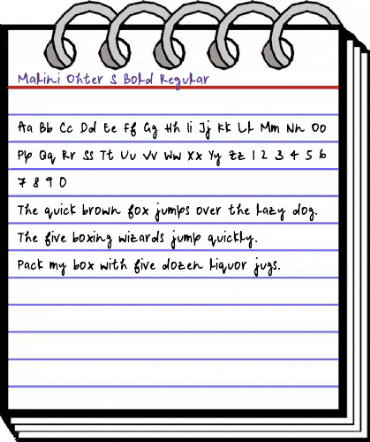 Malini Ohter S Bold Regular
Aa Bb Cc Dd Ee Ff Gg Hh Ii Jj Kk Ll Mm Nn Oo
Pp Qq Rr Ss Tt Uu Vv Ww Xx Yy Zz 1 2 3 4 5 6
7 8 9 0
The quick brown fox jumps over the lazy dog.
The five boxing wizards jump quickly.
Pack my box with five dozen liquor jugs.